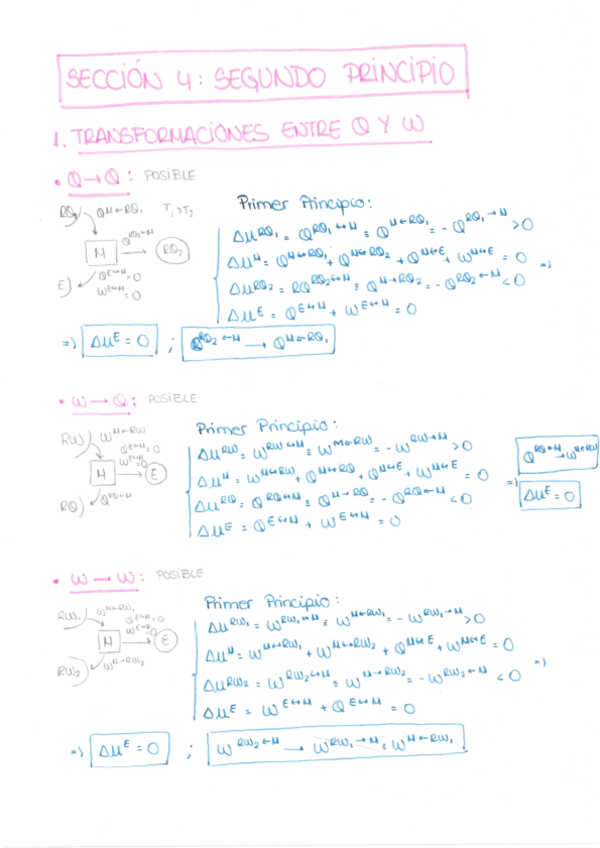 SECCIÓN 4: SEGUNDO PRINCIPIO
1. TRANSFORMACIONES ENTRE Q Y W
• Q → Q : POSIBLE
RQ₁ Q^M←RQ₁ T₁>T₂
M Q^RQ₂←M RQ₂
E Q^E↔M = 0
W^E↔M = 0
Primer Principio:
ΔU^RQ₁ = Q^RQ₁↔M ≡ Q^M←RQ₁ = -Q^RQ₁→M > 0
ΔU^M = Q^M↔RQ₁ + Q^M↔RQ₂ + Q^M↔E + W^M↔E = 0 =>
ΔU^RQ₂ = RQ^RQ₂↔M ≡ Q^M→RQ₂ = -Q^RQ₂←M < 0
ΔU^E = Q^E↔M + W^E↔M = 0
=> ΔU^E = 0 ; Q^RQ₂←M → Q^M←RQ₁
• W → Q : POSIBLE
RW W^M←RW
Q^E↔M = 0
W^E↔M = 0
M E
RQ Q^RQ←M
Primer Principio:
ΔU^RW = W^RW↔M ≡ W^M←RW = -W^RW→M > 0
ΔU^M = W^M↔RW + Q^M↔RQ + Q^M↔E + W^M↔E = 0
ΔU^RQ = Q^RQ↔M ≡ Q^M→RQ = -Q^RQ←M < 0
ΔU^E = Q^E↔M + W^E↔M = 0
=> Q^RQ←M → W^M←RW
ΔU^E = 0
• W → W : POSIBLE
RW₁ W^M←RW₁
Q^E↔M = 0
W^E↔M = 0
M E
RW₂ W^M→RW₂
Primer Principio:
ΔU^RW₁ = W^RW₁↔M ≡ W^M←RW₁ = -W^RW₁→M > 0
ΔU^M = W^M↔RW₁ + W^M↔RW₂ + Q^M↔E + W^M↔E = 0
ΔU^RW₂ = W^RW₂↔M ≡ W^M→RW₂ = -W^RW₂←M < 0 =>
ΔU^E = W^E↔M + Q^E↔M = 0
=> ΔU^E = 0 ; W^RW₂←M → W^RW₁→M ≡ W^M←RW₁